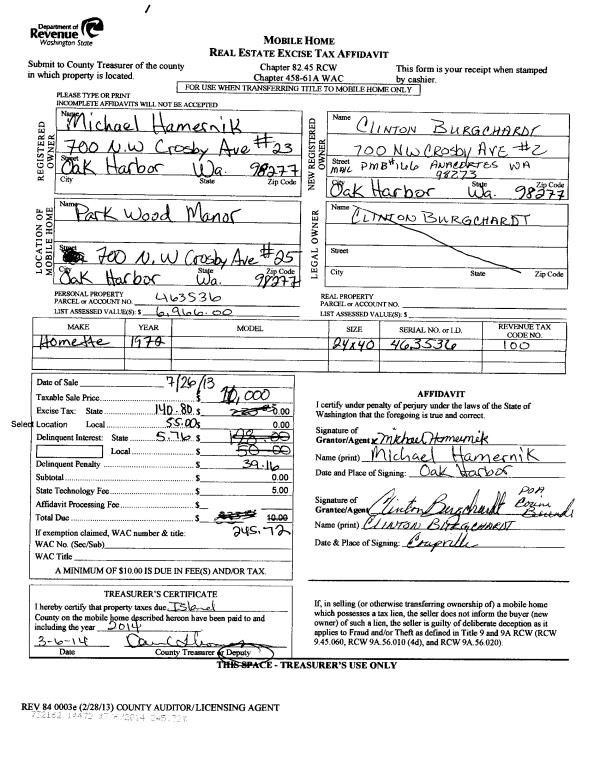 Department of
Revenue
Washington State
MOBILE HOME
REAL ESTATE EXCISE TAX AFFIDAVIT
Submit to County Treasurer of the county
in which property is located.
Chapter 82.45 RCW
Chapter 458-61A WAC
This form is your receipt when stamped
by cashier.
FOR USE WHEN TRANSFERRING TITLE TO MOBILE HOME ONLY
PLEASE TYPE OR PRINT
INCOMPLETE AFFIDAVITS WILL NOT BE ACCEPTED
REGISTERED OWNER
Name Michael Hamernik
700 N.W Crosby Ave #23
Street
Oak Harbor Wa. 98277
City State Zip Code
NEW REGISTERED OWNER
Name CLINTON BURGCHARDT
700 NW CROSBY AVE #2
Street MAIL PMB#166 ANACORTES WA
98273
Oak Harbor Wa. 98277
City State Zip Code
LOCATION OF MOBILE HOME
Name Park Wood Manor
Street 700 N.W Crosby Ave #25
City State Zip Code
Oak Harbor Wa. 98277
LEGAL OWNER
Name CLINTON BURGCHARDT
Street
City State Zip Code
PERSONAL PROPERTY
PARCEL or ACCOUNT NO. 463536
LIST ASSESSED VALUE(S): $ 6,966.00
REAL PROPERTY
PARCEL or ACCOUNT NO.
LIST ASSESSED VALUE(S): $
MAKE YEAR MODEL SIZE SERIAL NO. or I.D. REVENUE TAX CODE NO.
Homette 1972 24x40 463536 100
Date of Sale 7/26/13
Taxable Sale Price $ 11,000
Excise Tax: State 140.80 $ 0.00
Select Location Local 55.00 $ 0.00
Delinquent Interest: State 5.76 $
Local $ 50.00
Delinquent Penalty $ 39.16
Subtotal $ 0.00
State Technology Fee $ 5.00
Affidavit Processing Fee $
Total Due $ 10.00
245.72
If exemption claimed, WAC number & title:
WAC No. (Sec/Sub)
WAC Title
A MINIMUM OF $10.00 IS DUE IN FEE(S) AND/OR TAX.
AFFIDAVIT
I certify under penalty of perjury under the laws of the State of
Washington that the foregoing is true and correct.
Signature of
Grantor/Agent x Michael Hamernik
Name (print) Michael Hamernik
Date and Place of Signing: Oak Harbor
Signature of
Grantee/Agent Clinton Burgchardt POA
Name (print) CLINTON BURGCHARDT
Date & Place of Signing: Coupville
TREASURER'S CERTIFICATE
I hereby certify that property taxes due Island
County on the mobile home described hereon have been paid to and
including the year 2014
3-6-14
Date County Treasurer or Deputy
If, in selling (or otherwise transferring ownership of) a mobile home
which possesses a tax lien, the seller does not inform the buyer (new
owner) of such a lien, the seller is guilty of deliberate deception as it
applies to Fraud and/or Theft as defined in Title 9 and 9A RCW (RCW
9.45.060, RCW 9A.56.010 (4d), and RCW 9A.56.020).
THIS SPACE - TREASURER'S USE ONLY
REV 84 0003e (2/28/13) COUNTY AUDITOR/LICENSING AGENT